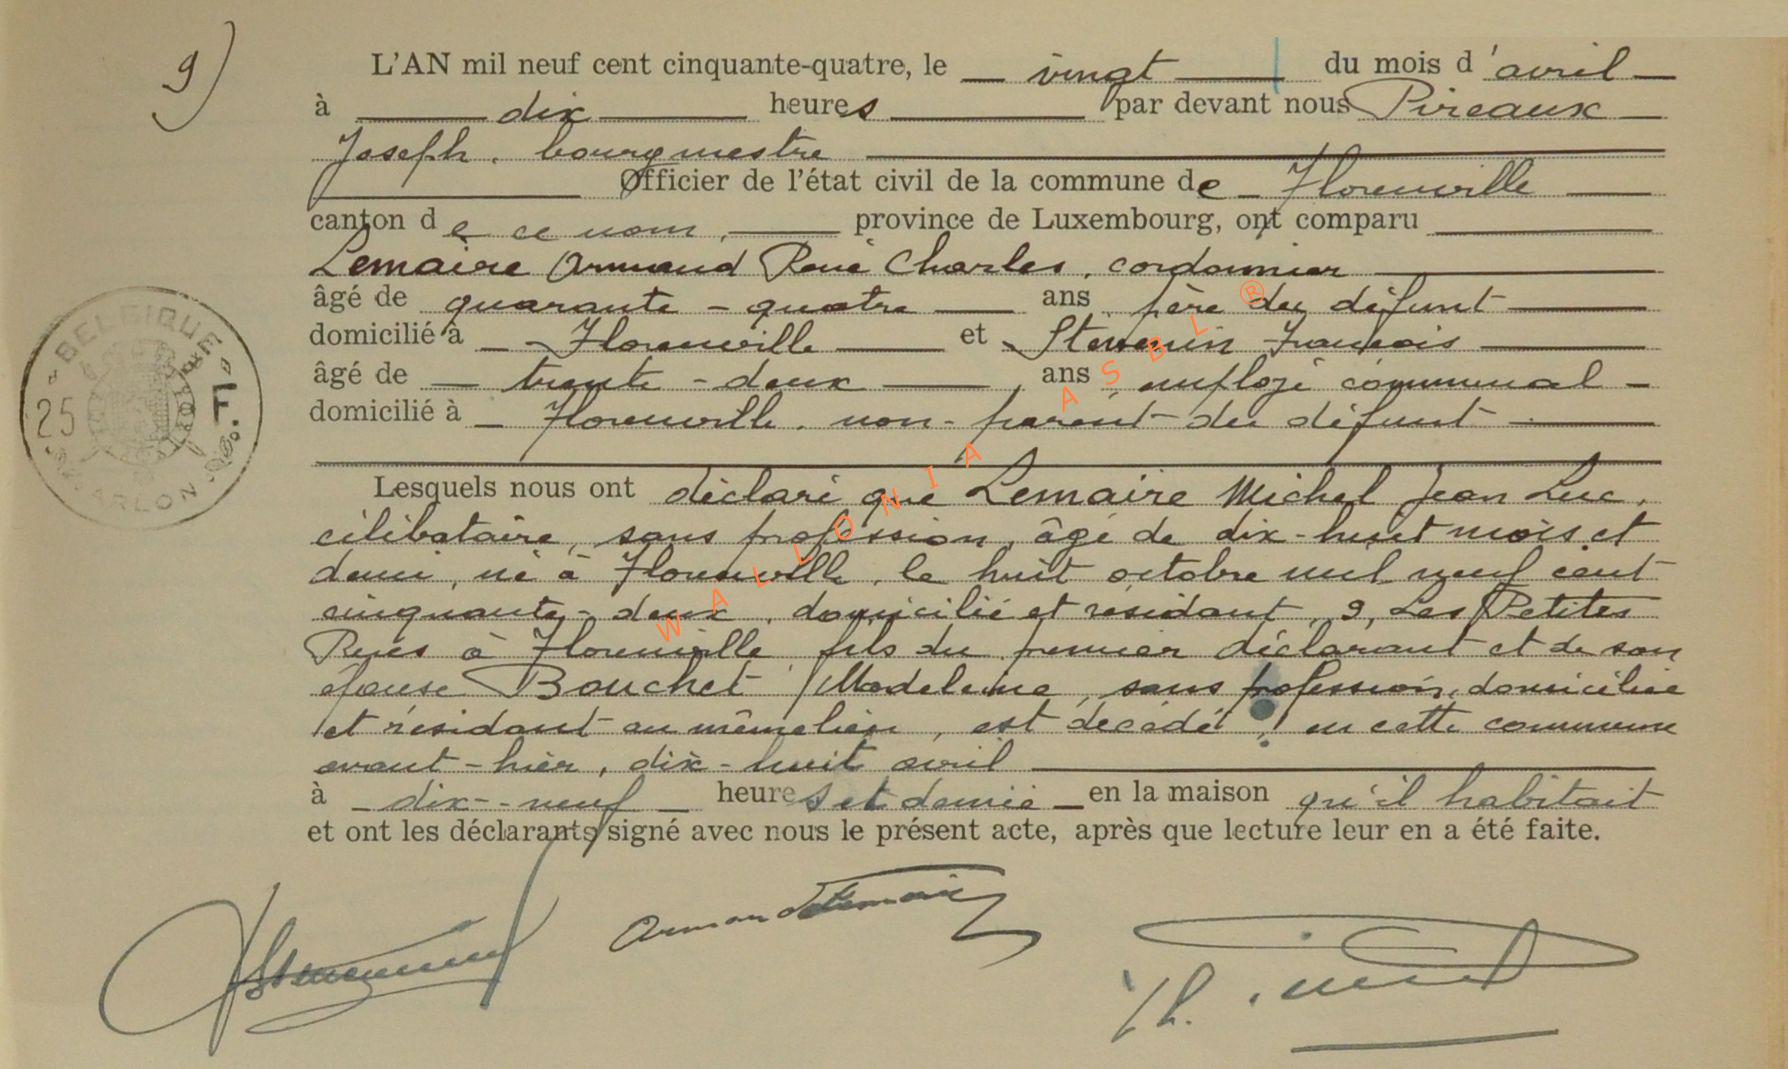 9)
L'AN mil neuf cent cinquante-quatre, le vingt du mois d'avril
à dix heures par devant nous Pireaux
Joseph, bourgmestre
Officier de l'état civil de la commune de Florenville
canton de ce nom, province de Luxembourg, ont comparu
Lemaire Armand René Charles, cordonnier
âgé de quarante-quatre ans père du défunt
domicilié à Florenville et Stevenin François
âgé de trente-deux ans employé communal
domicilié à Florenville, non-parent du défunt
Lesquels nous ont déclaré que Lemaire Michel Jean Luc,
célibataire, sans profession, âgé de dix-huit mois et
demi, né à Florenville, le huit octobre mil neuf cent
cinquante-deux, domicilié et résidant, 9, Les Petites
Rues à Florenville, fils du premier déclarant et de son
épouse Bouchet Madeleine, sans profession, domiciliée
et résidant au même lieu, est décédé, en cette commune
avant-hier, dix-huit avril
à dix-neuf heures et demie en la maison qu'il habitait
et ont les déclarants signé avec nous le présent acte, après que lecture leur en a été faite.
BELGIQUE
25 F.
ARLON
WALLONIA ASBL ®
Armand Lemaire